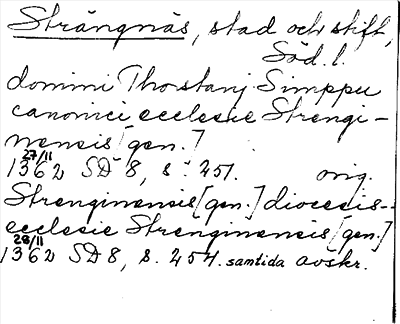 Strängnäs, stad och stift,
Söd. l.
domini Thostanj Simppu
canonici ecclesie Strengi-
nensis [gen.]
27/11
1362 SD 8, s. 251. orig.
Strenginensis [gen.] diocesis-
ecclesie Strenginensis [gen.]
28/11
1362 SD 8, s. 254. samtida avskr.